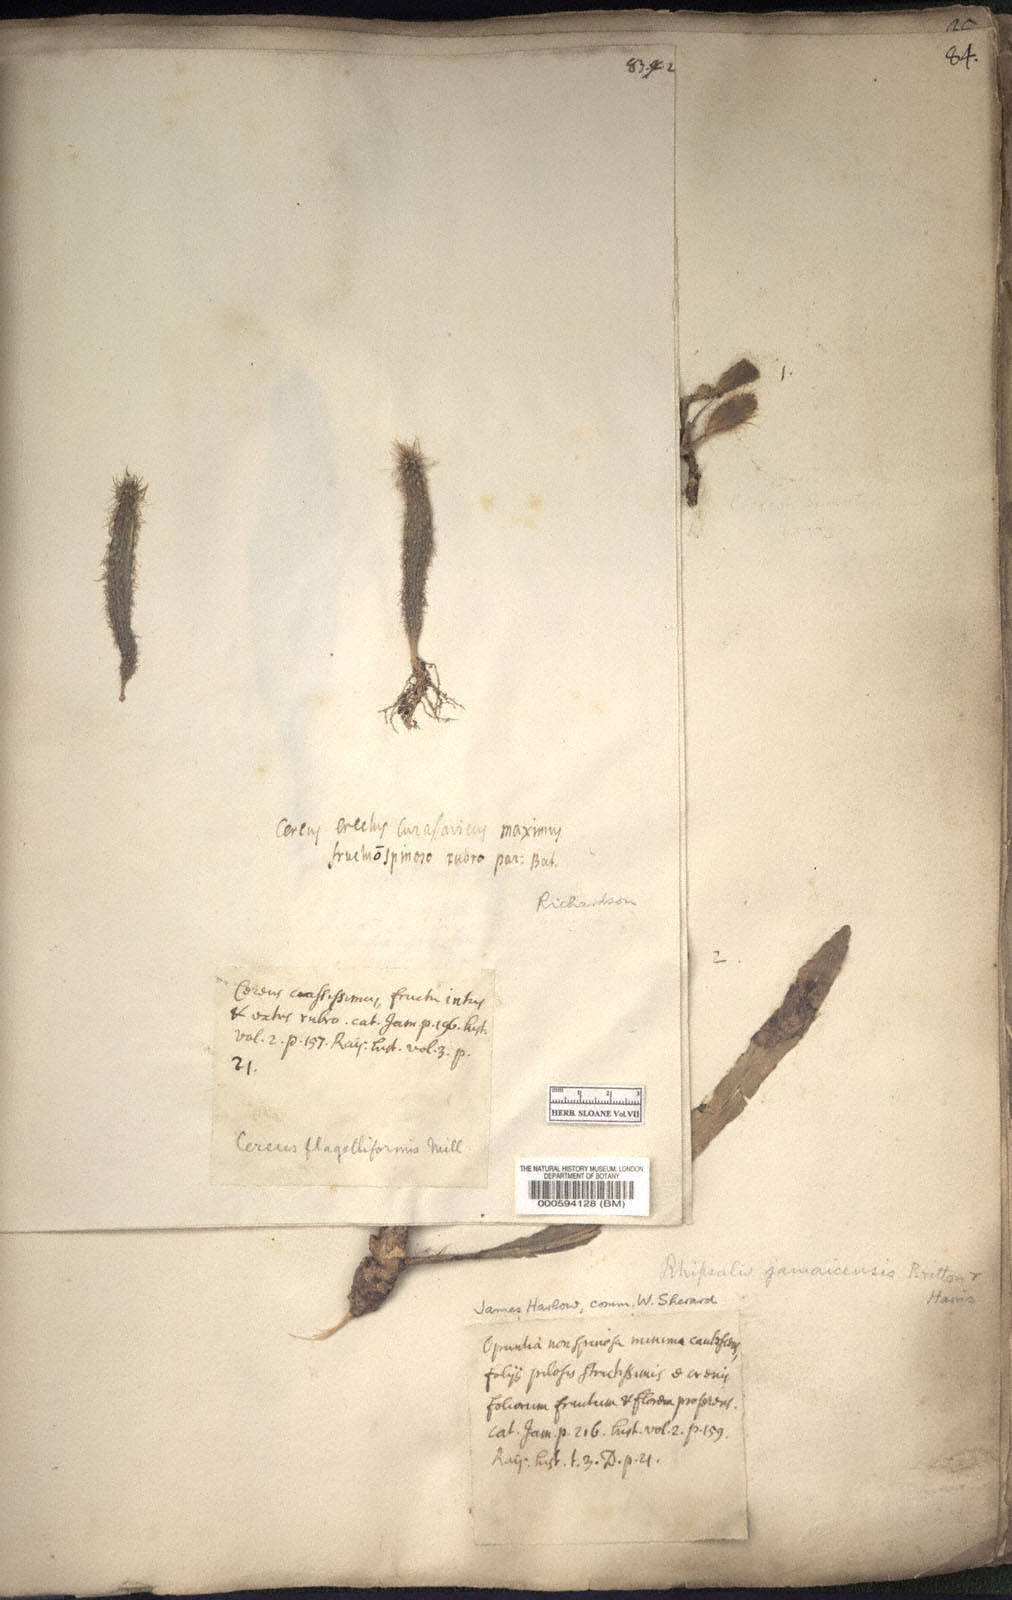 25
84.
83.42
1.
Cereus erectus Curasavicus maximus
fructu spinoso rubro par: Bat.
Richardson
2.
Cereus crassissimus, fructu intus
& extus rubro. cat. Jam. p. 196. hist.
vol. 2. p. 157. Raij. hist. vol. 3. p.
21.
HERB. SLOANE Vol.VII
Cereus flagelliformis Mill
THE NATURAL HISTORY MUSEUM, LONDON
DEPARTMENT OF BOTANY
000594128 (BM)
Rhipsalis jamaicensis Britton &
Harris
James Harlow, comm. W. Sherard
Opuntia non spinosa minima caulescens,
folijs pilosis strictissimis e crenis
foliorum fructum & florem proferens.
cat. Jam. p. 216. hist. vol. 2. p. 159.
Raij. hist. t. 3. D. p. 21.